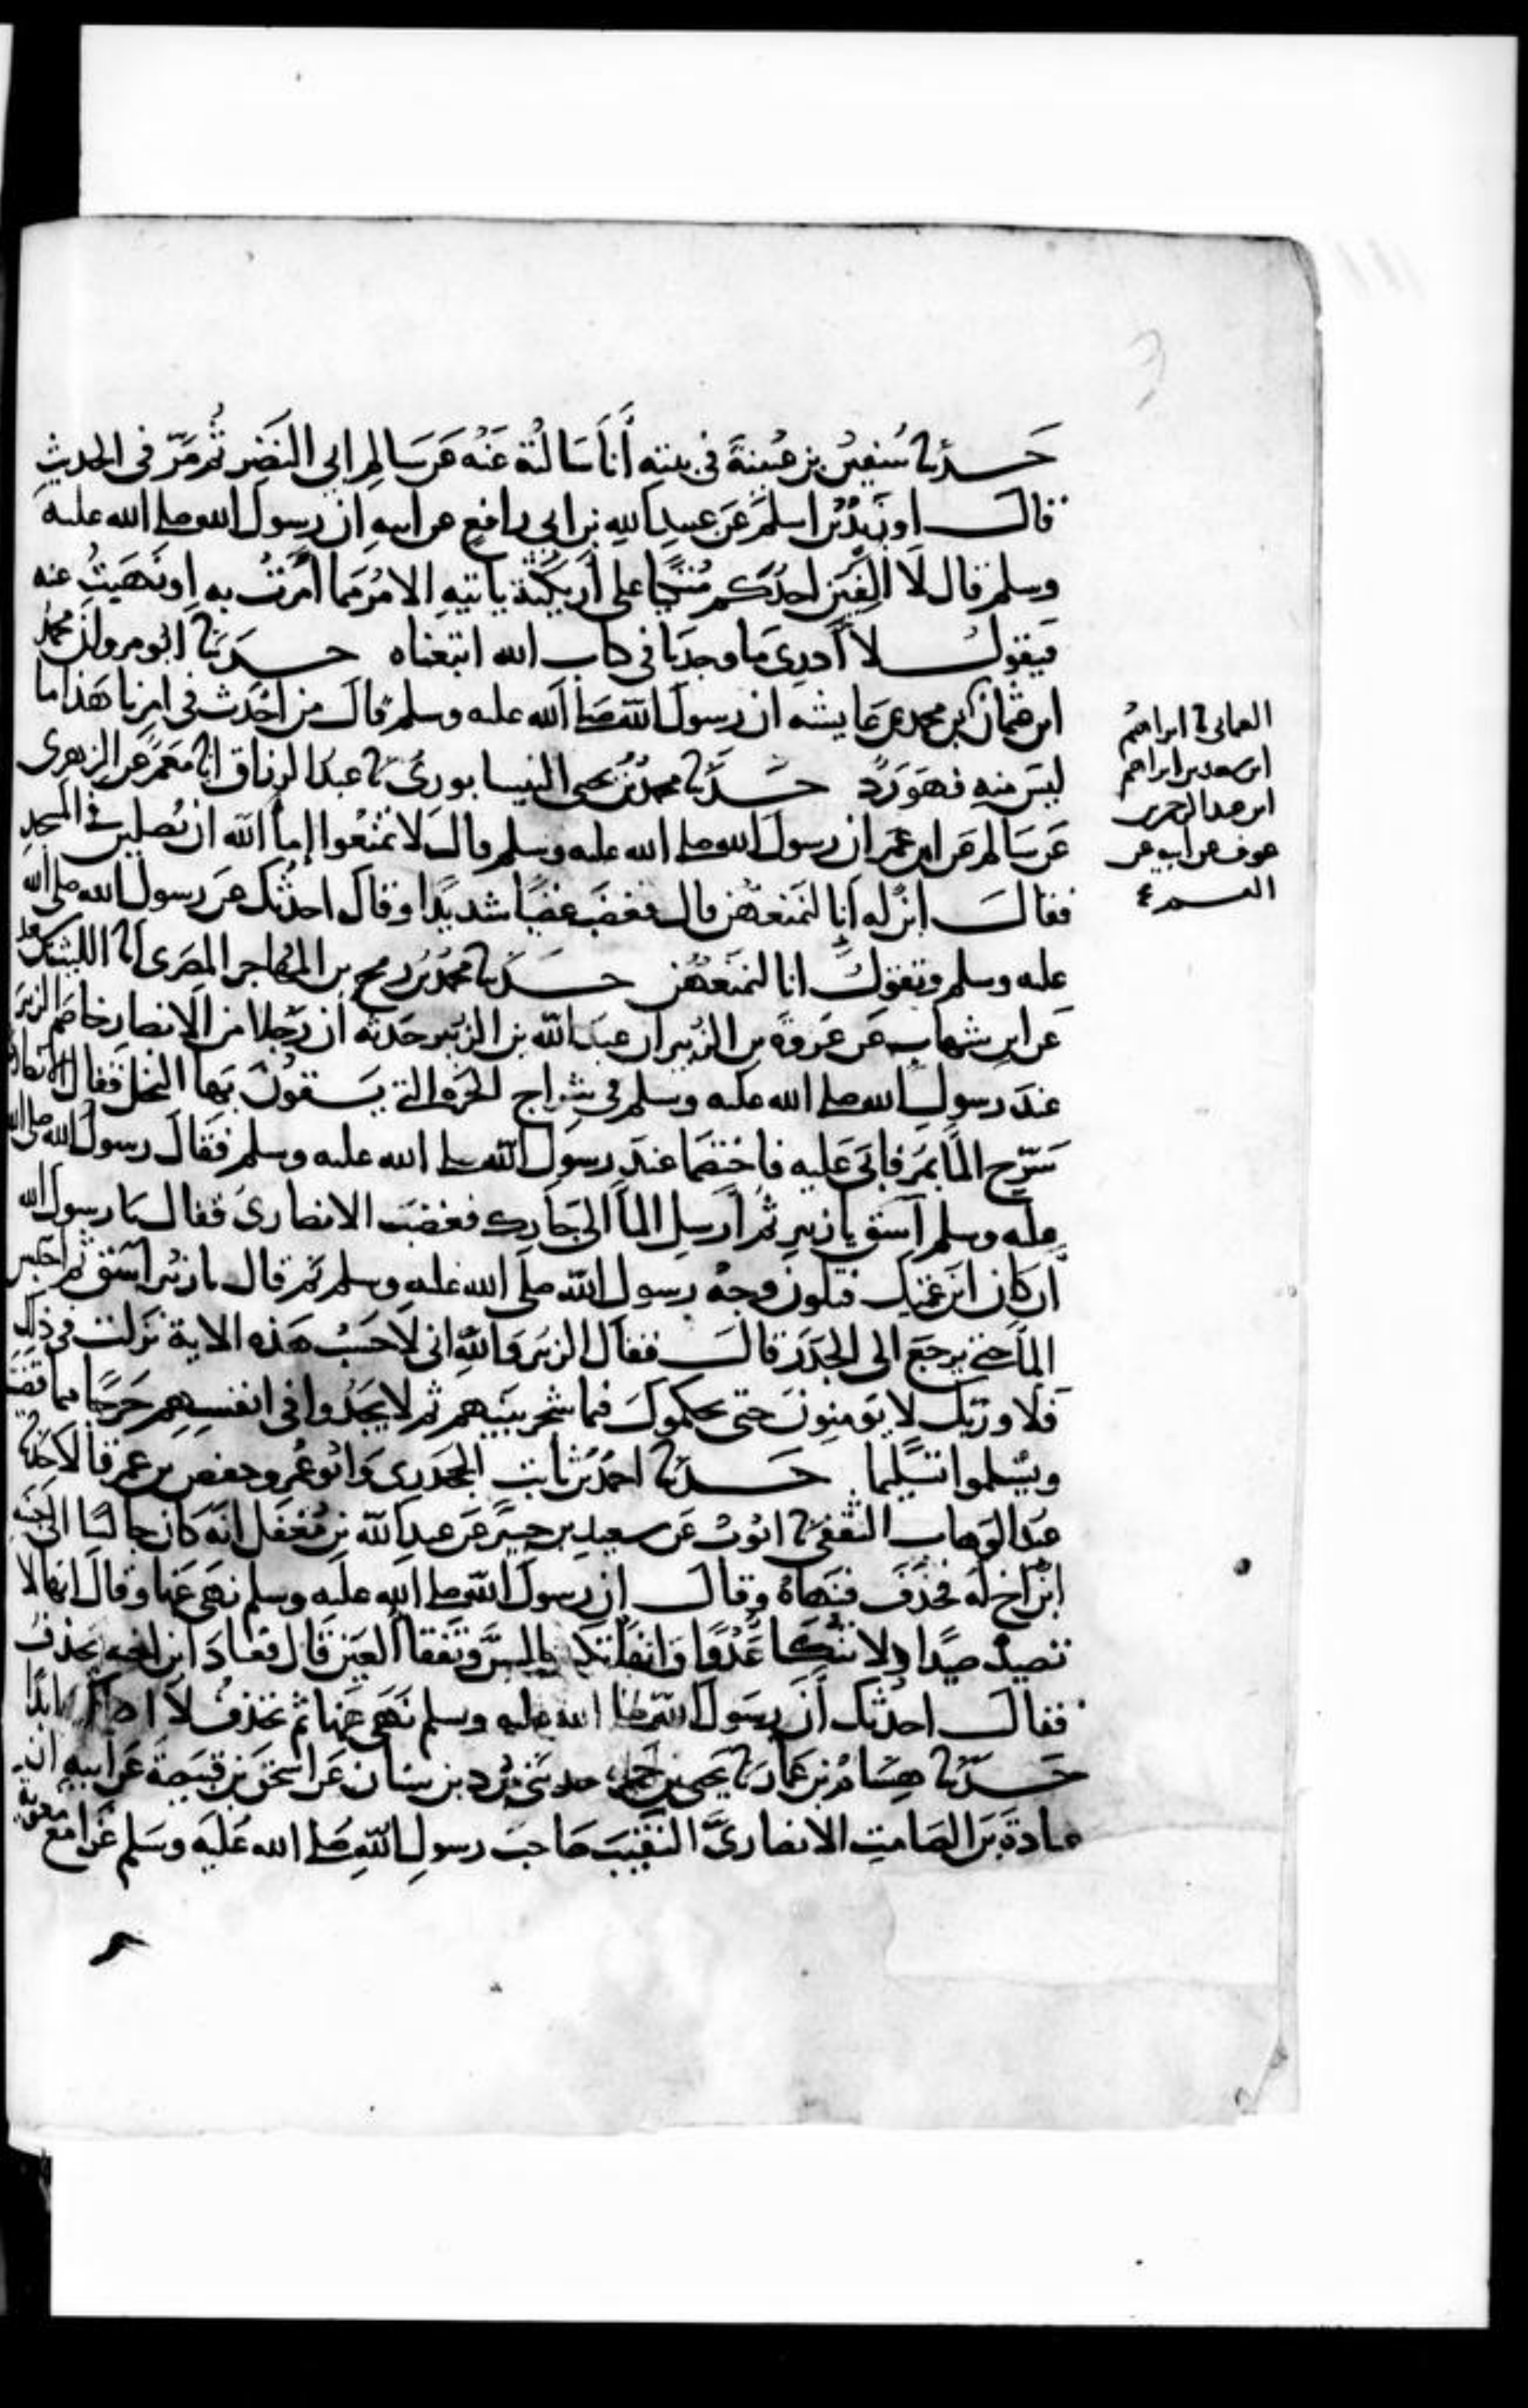 حدثنا سفين بن عيينة في بيته أنا سالته عنه عن سالم ابي النضر ثم مر في الحديث
قال او زيد بن اسلم عن عبيد الله بن ابي رافع عن ابيه ان رسول الله صلى الله عليه
وسلم قال لا الفين احدكم متكيا على اريكته ياتيه الامر مما امرت به او نهيت عنه
فيقول لا أدري ما وجدنا في كتاب الله اتبعناه حدثنا ابو مروان محمد
ابن عثمان ابن محمد عن عايشه ان رسول الله صلى الله عليه وسلم قال من احدث في امرنا هذا ما
ليس منه فهو رد حدثنا محمد بن يحيى النيسابوري نا عبد الرزاق انا معمر عن الزهري
عن سالم عن ابن عمر ان رسول الله صلى الله عليه وسلم قال لا تمنعوا إماٱ الله ان يصلين في المسجد
فقال ابن له انا لنمنعهن قال فغضب غضبا شديدا وقال احدثك عن رسول الله صلى الله
عليه وسلم وتقول انا لنمنعهن حدثنا محمد بن رمح بن المهاجر المصري انا الليث بن سعد
عن ابن شهاب عن عروة بن الزبير ان عبد الله بن الزبير حدثه ان رجلا من الانصار خاصم الزبير
عند رسول الله صلى الله عليه وسلم في شراج الحرة التي يسقون بها النخل فقال الانصاري
سرح الما يمر فابى عليه فاختصما عند رسول الله صلى الله عليه وسلم فقال رسول الله صلى الله
عليه وسلم اسق يا زبير ثم أرسل الما الى جارك فغضب الانصاري فقال يا رسول الله
أن كان ابن عمتك فتلون وجه رسول الله صلى الله عليه وسلم ثم قال يا زبير اسق ثم احبس
الما حتى يرجع الى الجدر قال فقال الزبير والله اني لاحسب هذه الاية نزلت في ذلك
فلا وربك لا يومنون حتى يحكموك فيما شجر بينهم ثم لا يجدوا في انفسهم حرجا مما قضيت
ويسلموا تسليما حدثنا احمد بن ثابت الجحدري وابو عمرو حفص بن عمر قالا حدثنا
عبد الوهاب الثقفي نا ايوب عن سعيد بن جبير عن عبد الله بن مغفل انه كان جالسا الى جنبه
ابن اخ له فخذف فنهاه وقال ان رسول الله صلى الله عليه وسلم نهى عنها وقال انها لا
تصيد صيدا ولا تنكا عدوا وانها تكسر السن وتفقا العين قال فعاد ابن اخيه يخذف
فقال احدثك أن رسول الله صلى الله عليه وسلم نهى عنها ثم تخذف لا ابدا
حدثنا هشام بن عمار نا يحيى بن حمزه حدثني برد بن سنان عن اسحق بن قبيصة عن ابيه ان
عبادة بن الصامت الانصاري النقيب صاحب رسول الله صلى الله عليه وسلم غزا مع معوية
العثماني نا ابراهيم
ابن سعد بن ابراهيم
ابن عبد الرحمن بن
عوف عن ابيه عن
القسم